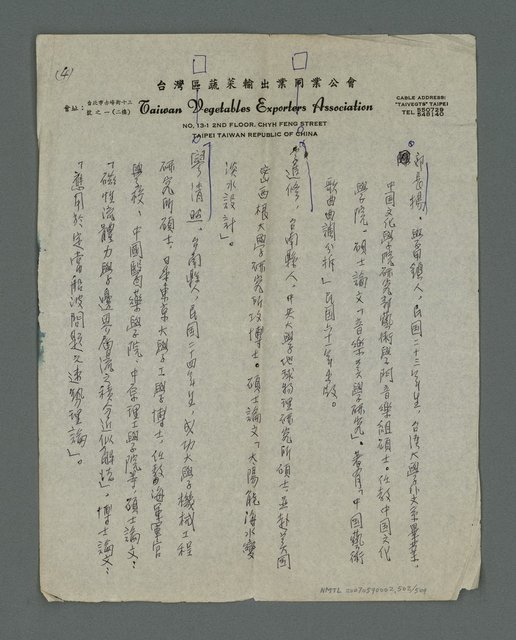 (4)
台灣區蔬菜輸出業同業公會
會址：台北市赤峰街十三號之一(二樓)
Taiwan Vegetables Exporters Association
NO. 13-1 2ND FLOOR, CHYH FENG STREET
TAIPEI TAIWAN REPUBLIC OF CHINA
CABLE ADDRESS:
"TAIVEGTS" TAIPEI
TEL 550729
545140
郭長揚，台南縣人，民國二十三年生，台湾大學外文系畢業，
中国文化學院研究所藝術學門音樂組碩士。任教中国文化
學院。碩士論文「音樂美學研究」。著有「中国藝術
歌曲曲調分析」民国六十一年出版。
進修，台南縣人，中央大學地球物理研究所碩士並赴美国
密西根大學研究所攻博士。碩士論文「太陽能海水變
淡水設計」。
廖清照，台南縣人，民国二十四年生，成功大學機械工程
研究所碩士，日本東京大學工學博士，任教海軍軍官
學校、中國醫藥學院、中原理工學院等，碩士論文：
「磁性流體力學邊界層流之積分近似解法」，博士論文：
「應用於定常船波問題之速勢理論」。
NMTL 20070590002,502/504